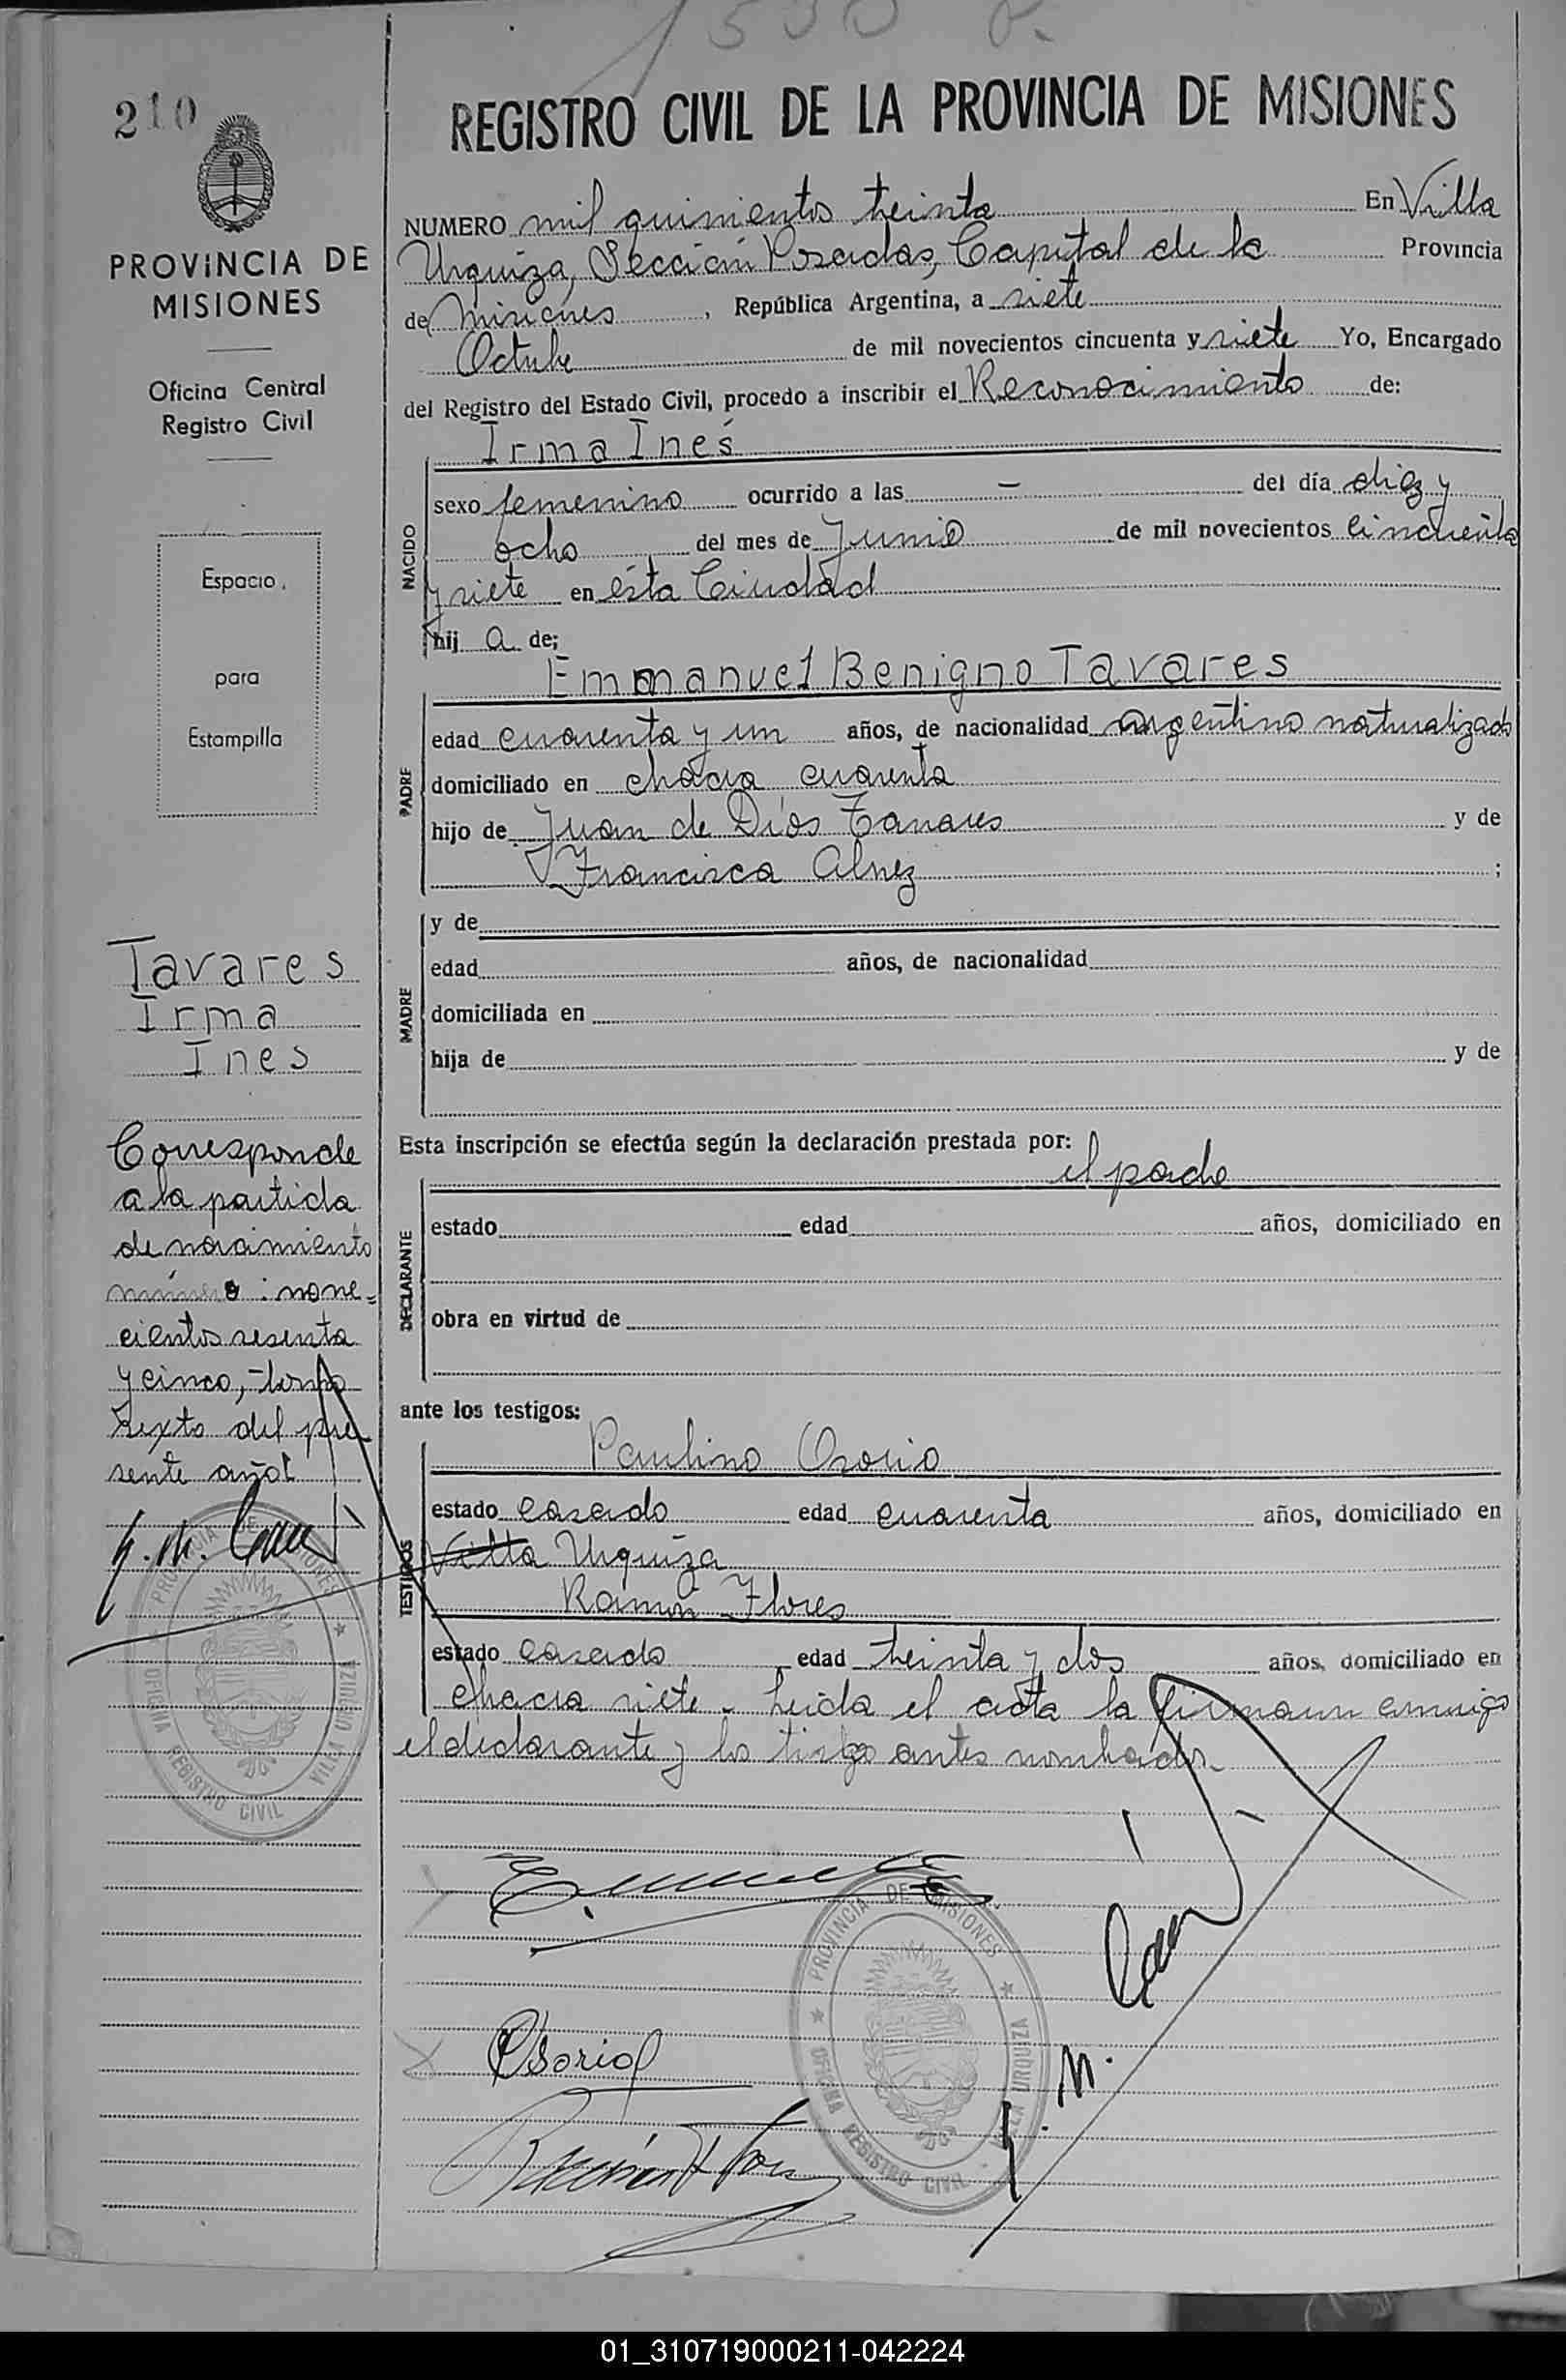 1530 P.
210
REGISTRO CIVIL DE LA PROVINCIA DE MISIONES
PROVINCIA DE
MISIONES
Oficina Central
Registro Civil
Espacio
para
Estampilla
NUMERO mil quinientos treinta En Villa
Urquiza, Sección Posadas, Capital de la Provincia
de Misiones, República Argentina, a siete
Octubre de mil novecientos cincuenta y siete Yo, Encargado
del Registro del Estado Civil, procedo a inscribir el Reconocimiento de:
Irma Inés
NACIDO
sexo femenino ocurrido a las — del día diez y
ocho del mes de Junio de mil novecientos cincuenta
y siete en ésta Ciudad
hij a de;
Emmanuel Benigno Tavares
PADRE
edad cuarenta y un años, de nacionalidad argentino naturalizado
domiciliado en chacra cuarenta
hijo de Juan de Dios Tavares y de
Francisca ;
MADRE
y de
edad años, de nacionalidad
domiciliada en
hija de y de
Tavares
Irma
Ines
Corresponde
a la partida
de nacimiento
número : nove=
cientos sesenta
y cinco,- tomo
sexto del pre
sente año.
Esta inscripción se efectúa según la declaración prestada por:
el padre
DECLARANTE
estado edad años, domiciliado en
obra en virtud de
ante los testigos:
Paulino Osorio
TESTIGOS
estado casado edad cuarenta años, domiciliado en
Villa Urquiza
Ramón Flores
estado casado edad treinta y dos años, domiciliado en
chacra siete - Leida el acta la firmaron conmigo
el declarante y los antes nombrados.
PROVINCIA DE MISIONES
OFICINA REGISTRO CIVIL VILLA URQUIZA
Osorio
Ramón Flores
PROVINCIA DE MISIONES
OFICINA REGISTRO CIVIL VILLA URQUIZA
01_310719000211-042224